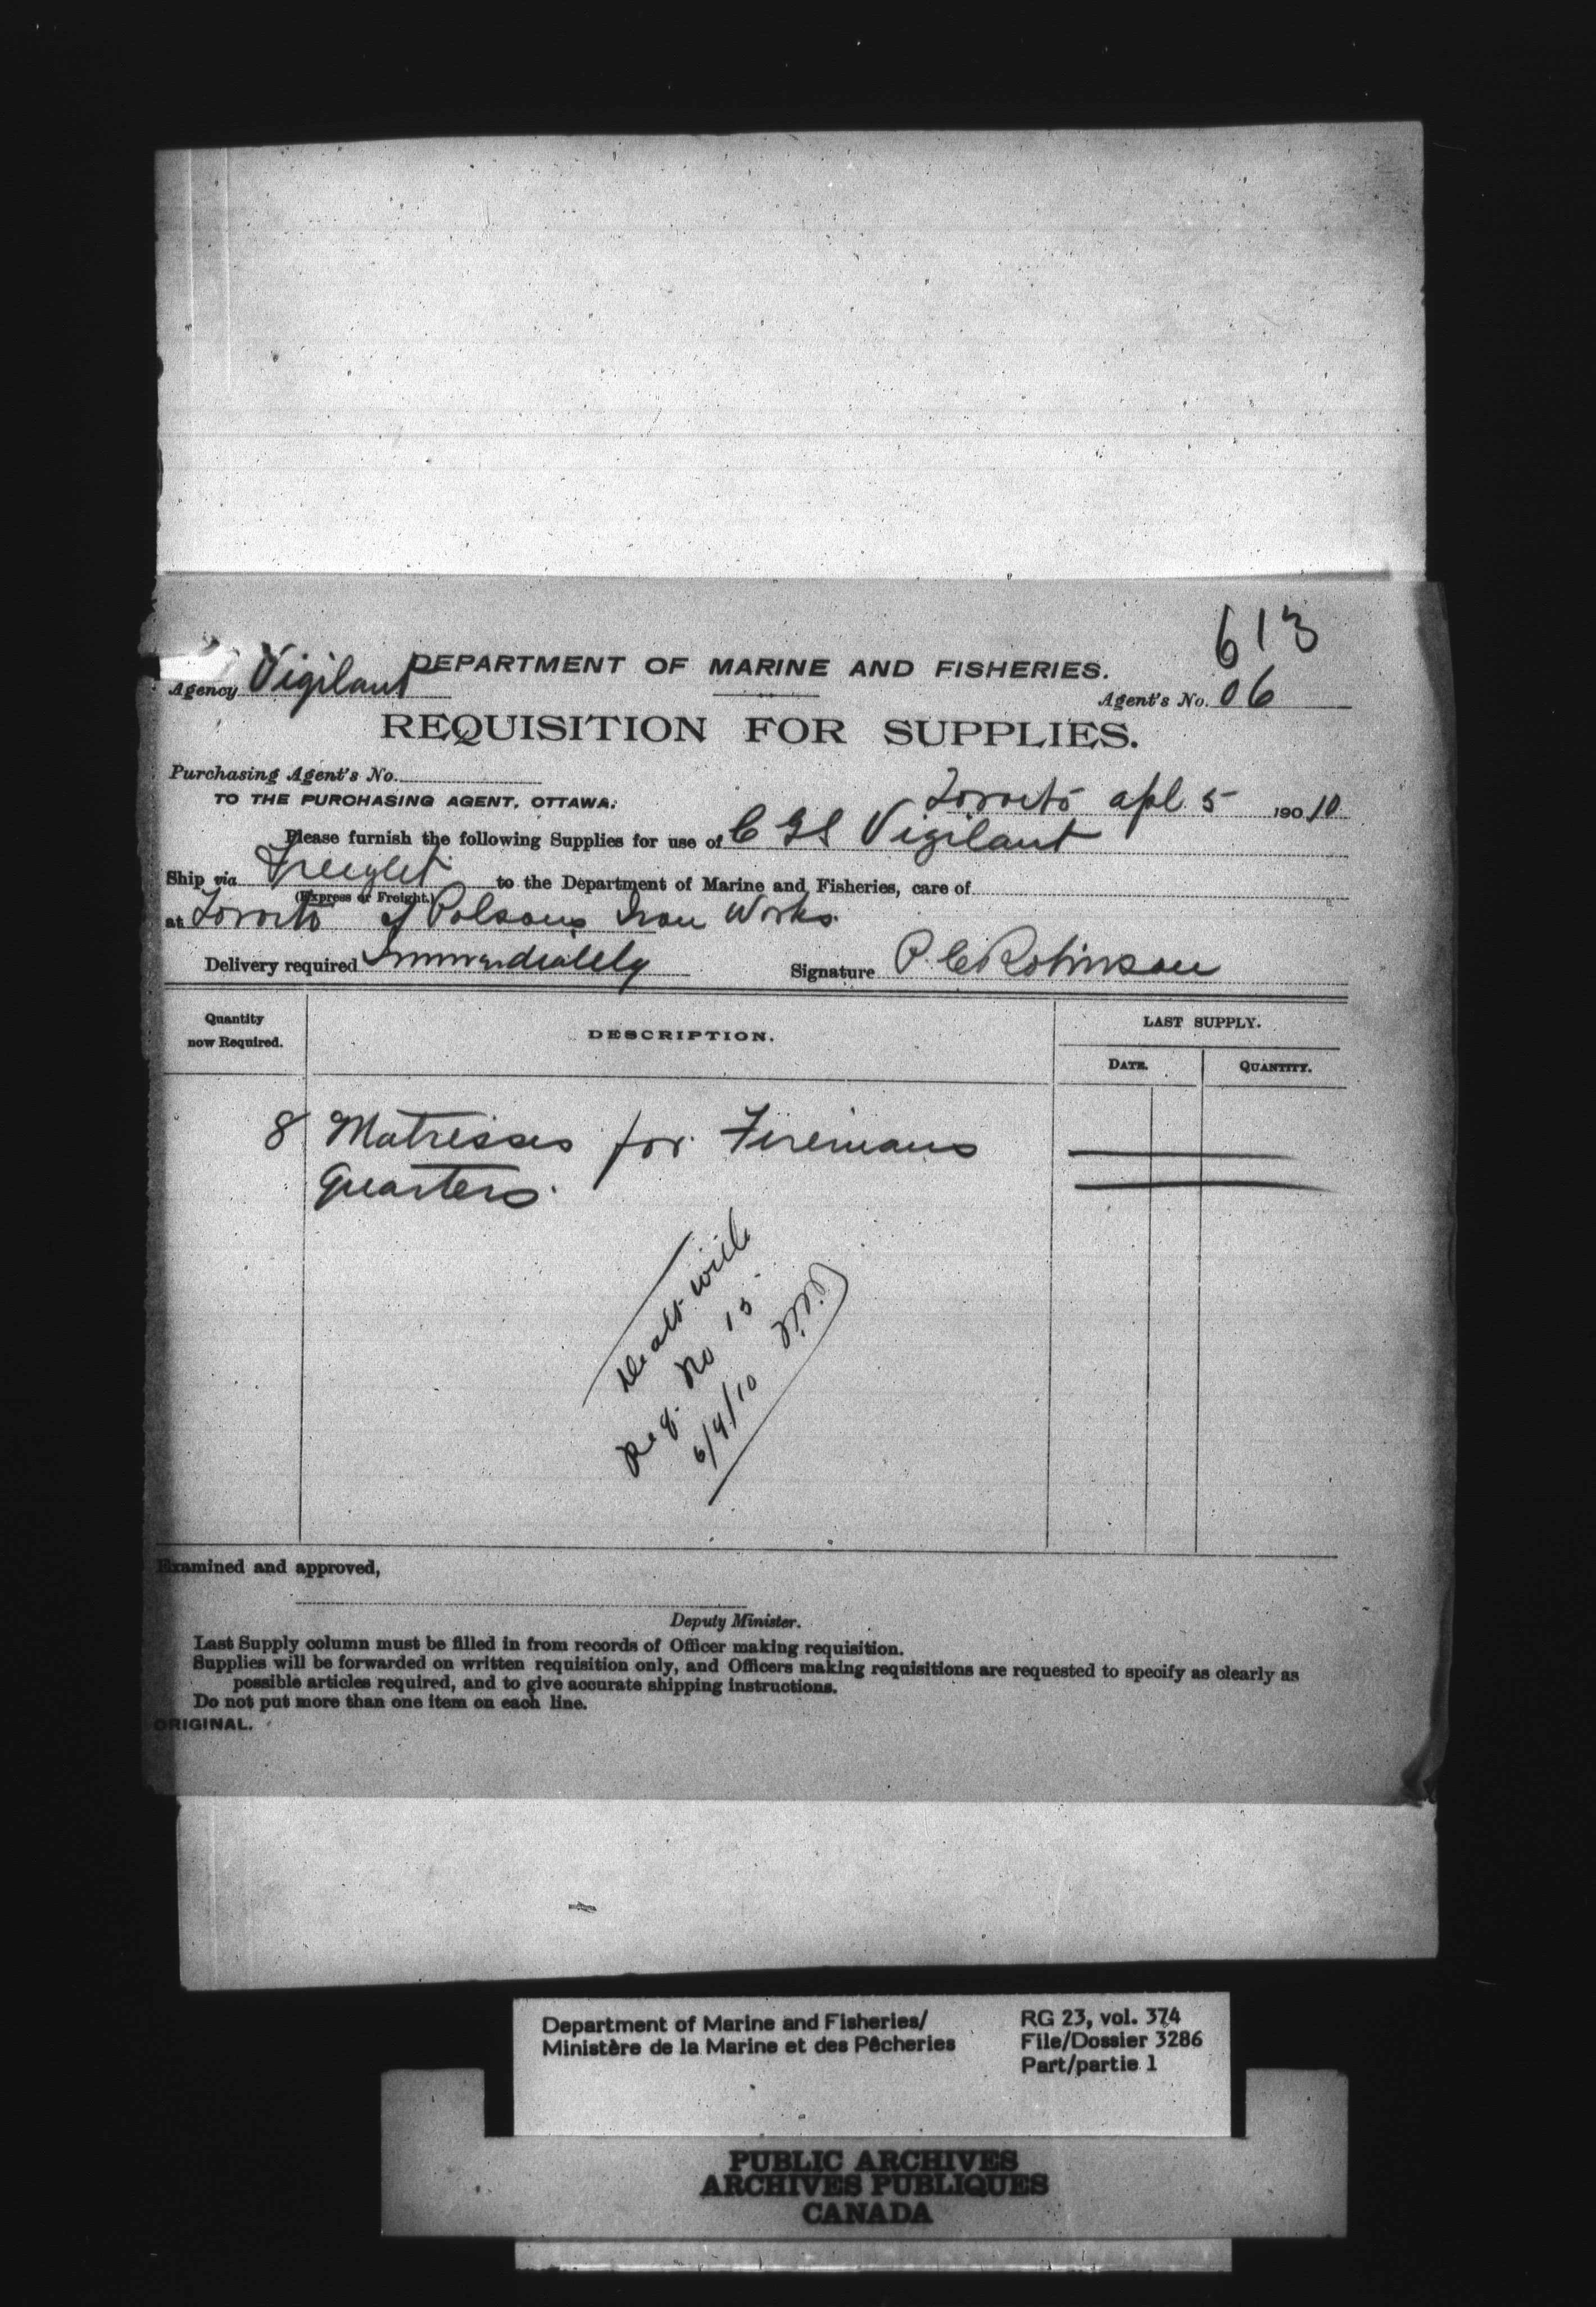 613
DEPARTMENT OF MARINE AND FISHERIES.
Agency Vigilant
Agent's No. 06
REQUISITION FOR SUPPLIES.
Purchasing Agent's No.
TO THE PURCHASING AGENT, OTTAWA:
Toronto apl. 5 190 10
Please furnish the following Supplies for use of C G S Vigilant
Ship via Freight to the Department of Marine and Fisheries, care of
(Express or Freight.)
at Toronto Polsons Iron Works.
Delivery required Immediately Signature P. C. Robinson
Quantity now Required.
DESCRIPTION.
LAST SUPPLY.
DATE. QUANTITY.
8 Matresses for Firemans
Quarters.
Dealt with
Req. No 15
6/4/10
Examined and approved,
Deputy Minister.
Last Supply column must be filled in from records of Officer making requisition.
Supplies will be forwarded on written requisition only, and Officers making requisitions are requested to specify as clearly as
possible articles required, and to give accurate shipping instructions.
Do not put more than one item on each line.
ORIGINAL.
Department of Marine and Fisheries/
Ministère de la Marine et des Pêcheries
RG 23, vol. 374
File/Dossier 3286
Part/partie 1
PUBLIC ARCHIVES
ARCHIVES PUBLIQUES
CANADA